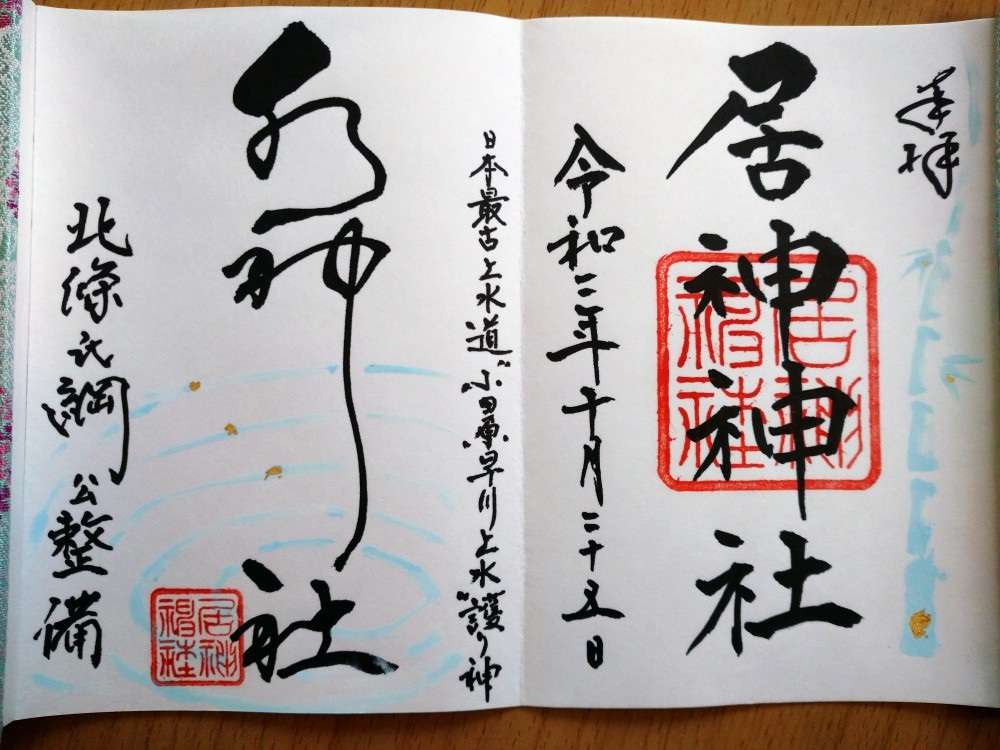 奉拝
居神神社
居神神社
令和三年十月二十五日
日本最古上水道“小田原早川上水”護り神
水神社
居神神社
北條氏綱公整備